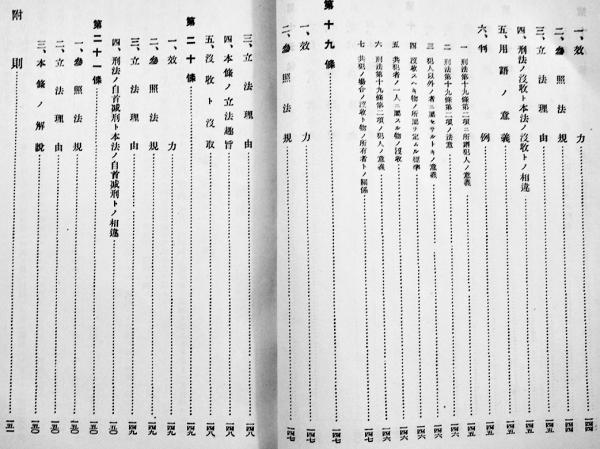 一、效力 一四四
二、參照法規 一四四
三、立法理由 一四四
四、刑法ノ沒收ト本法ノ沒收トノ相違 一四五
五、用語ノ意義 一四五
六、判例 一四五
一 刑法第十九條第二項ニ所謂犯人ノ意義 一四五
二 刑法第十九條第二項ノ法意 一四五
三 犯人以外ノ者ニ屬セサルトキノ意義 一四六
四 沒收スヘキ物ノ所屬ヲ定ムル標準 一四六
五 共犯者ノ一人ニ屬スル物ノ沒收 一四六
六 刑法第十九條第二項ノ犯人ノ意義 一四六
七 共犯ノ場合ノ沒收ト物ノ所有者トノ關係 一四七
第十九條 一四七
一、效力 一四七
二、參照法規 一四七
三、立法理由 一四八
四、本條ノ立法趣旨 一四八
五、沒收ト沒取 一四八
第二十條 一四九
一、效力 一四九
二、參照法規 一四九
三、立法理由 一四九
四、刑法ノ自首減刑ト本法ノ自首減刑トノ相違 一五〇
第二十一條 一五〇
一、參照法規 一五〇
二、立法理由 一五〇
三、本條ノ解說 一五〇
附則 一五一